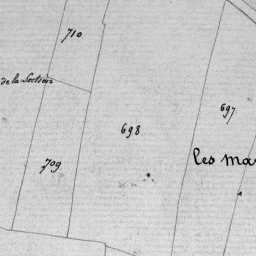 710
de la Section
697
698
Les Ma
709